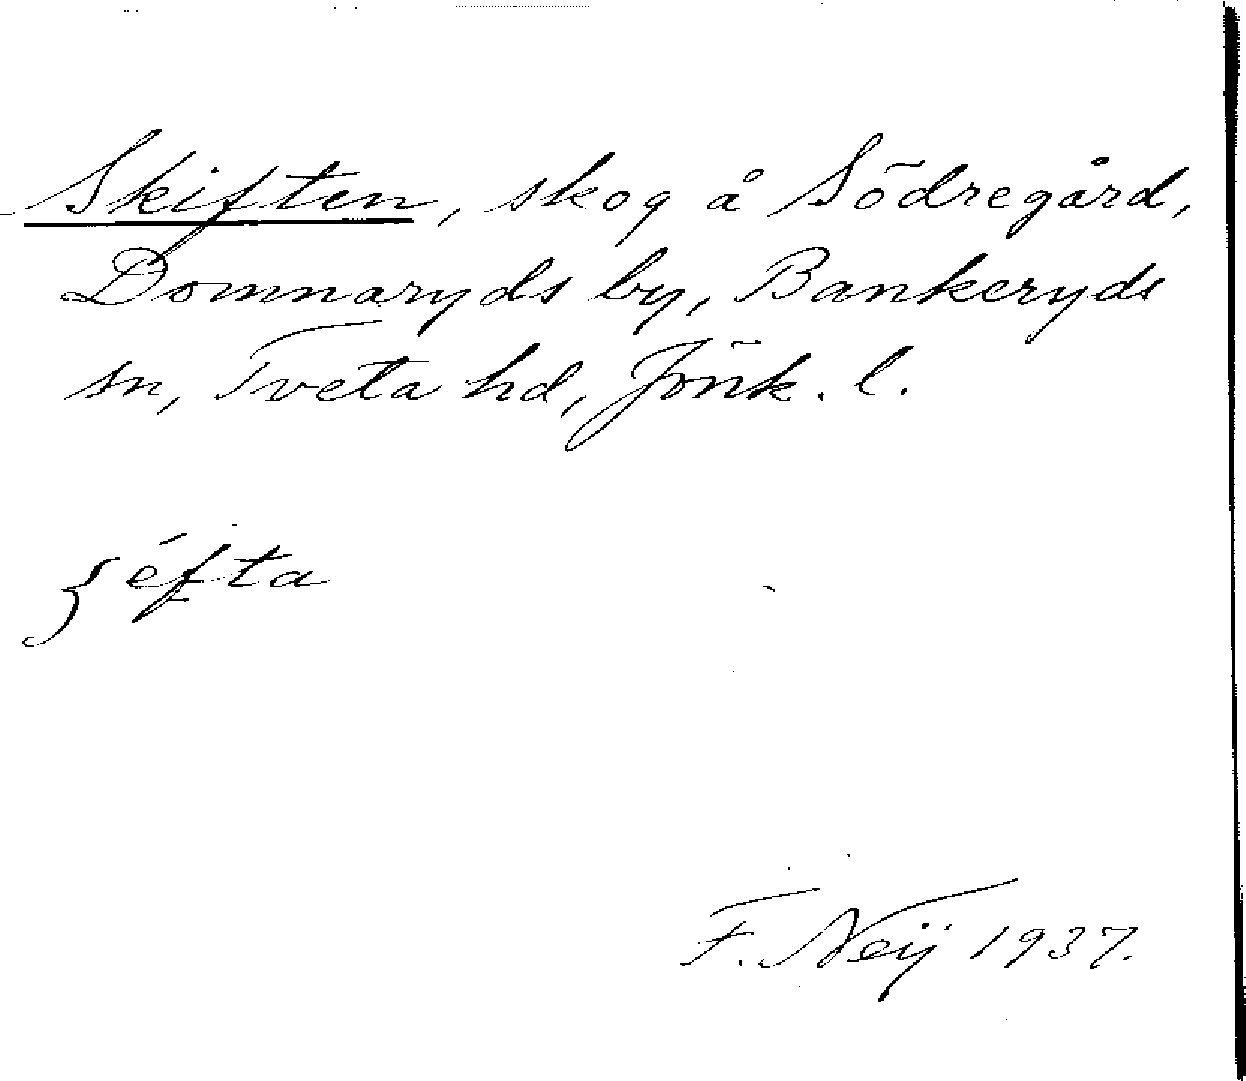 Skiften, skog å Södregård,
Domnaryds by, Bankeryds
sn, Tveta hd, Jönk. l.
ʒéfta
F. Neij 1937.